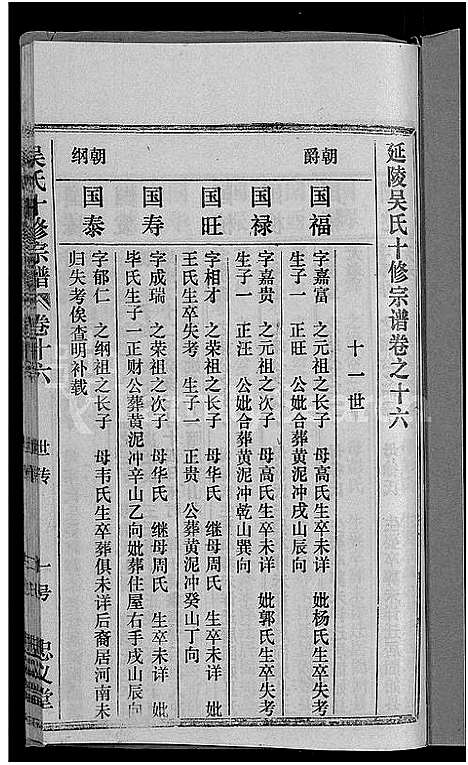 延陵吴氏十修宗谱卷之十六
十一世
朝爵
国福
字嘉富 之元祖之长子 母高氏生卒未详 妣杨氏生卒失考
生子一 正旺 公妣合葬黄泥冲戌山辰向
国禄
字嘉贵 之元祖之次子 母高氏生卒未详 妣郭氏生卒失考
生子一 正汪 公妣合葬黄泥冲乾山巽向
国旺
字相才 之荣祖之长子 母华氏 继母周氏 生卒未详 妣
王氏生卒失考 生子一 正贵 公葬黄泥冲癸山丁向
国寿
字成瑞 之荣祖之次子 母华氏 继母周氏 生卒未详 妣
毕氏生子一 正财公葬黄泥冲辛山乙向妣葬住屋右手戌山辰向
朝纲
国泰
字郁仁 之纲祖之长子 母韦氏生卒葬俱未详后裔居河南未
归失考俟查明补载
吴氏十修宗谱 卷十六 世传 一号 忠义堂